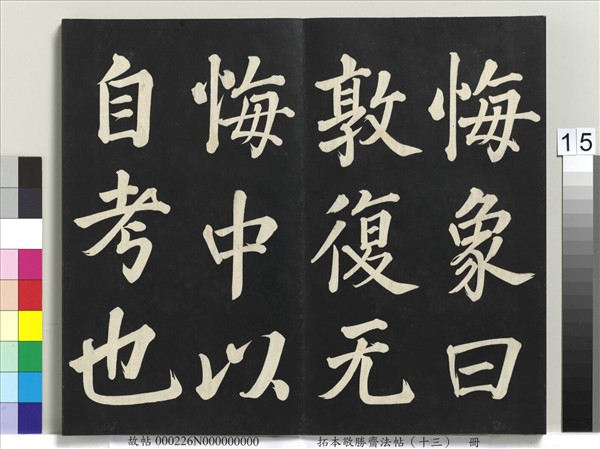 悔象曰
敦復无
悔中以
自考也
15
故帖 000226N000000000
拓本敬勝齋法帖（十三） 冊